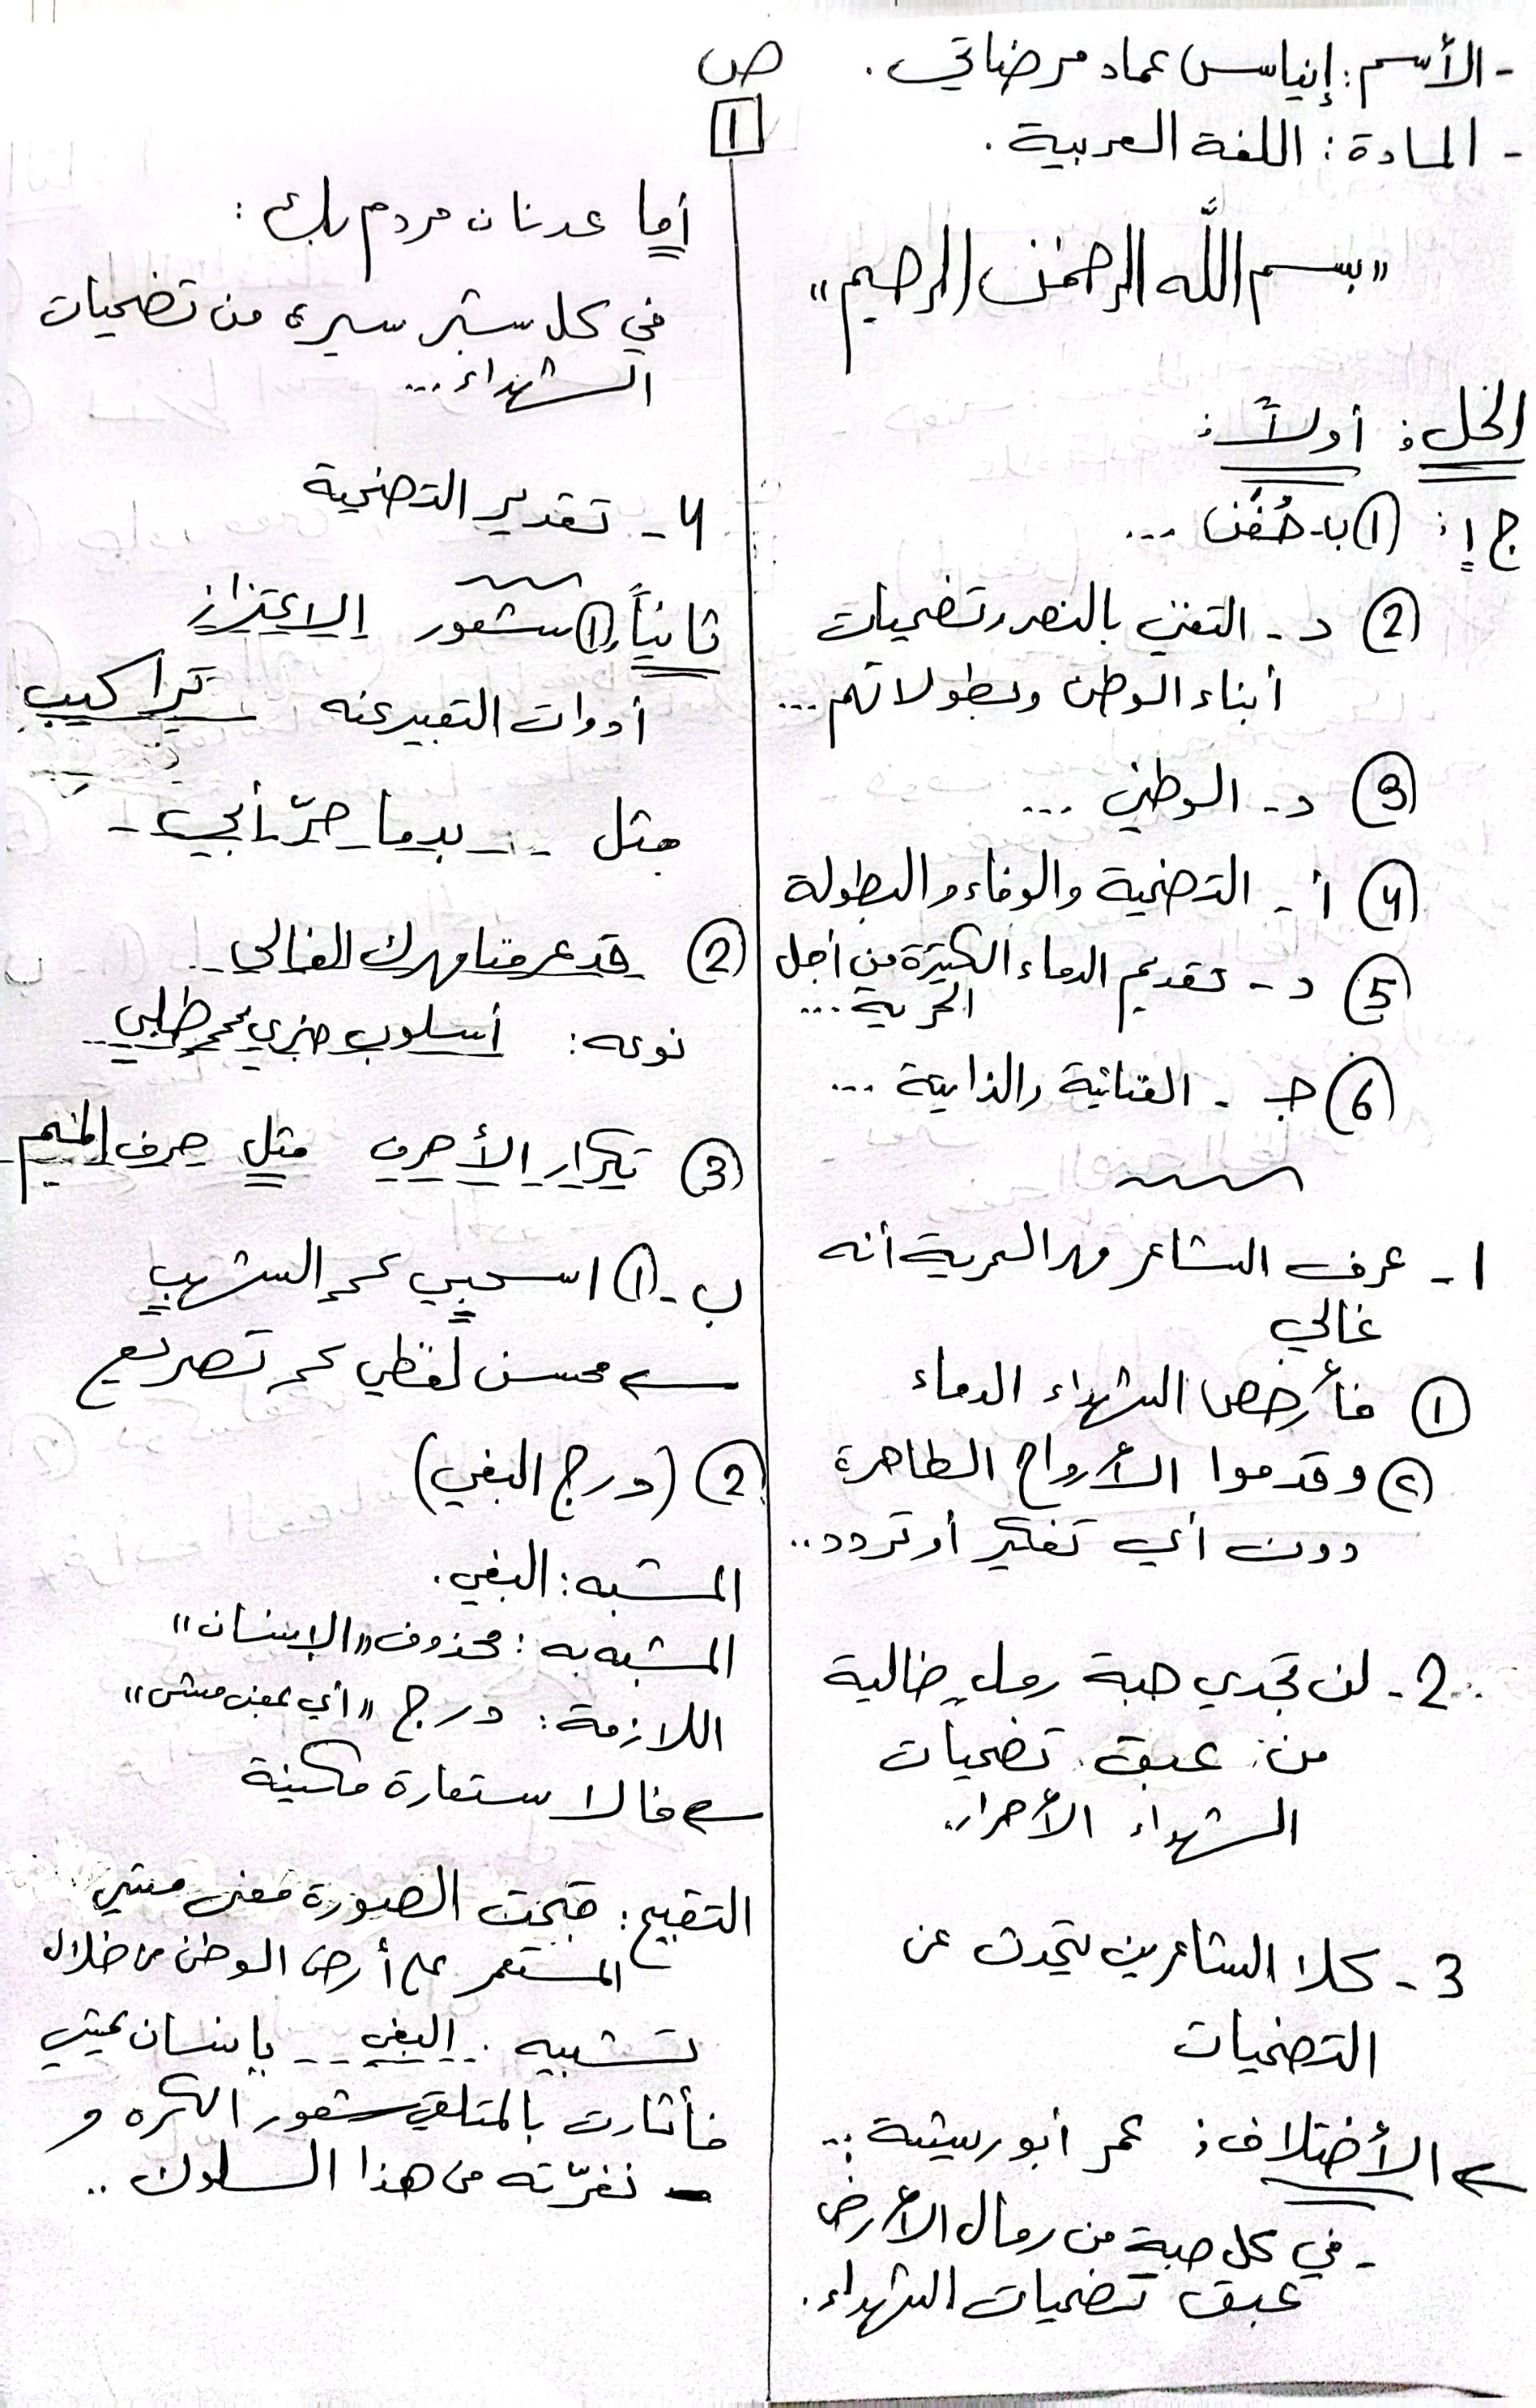 - الأسم: إيناس عماد مرضاتي.
- المادة: اللغة العربية.
ص
1
"بسم الله الرحمن الرحيم"
الحل: أولاً:
ج1: ① ب- حُفَن ...
② د - التغني بالنصر وتضحيات
أبناء الوطن وبطولاتهم...
③ د - الوطني ...
④ أ - التضحية والوفاء والبطولة
⑤ د - تقديم الدماء الكثيرة من أجل
الحرية...
⑥ جـ - الغنائية والذاتية ...
1- عرف الشاعر مهر الحرية أنه
غالي
① فأرخص الشهداء الدماء
② وقدموا الأرواح الطاهرة
دون أي تفكير أو تردد..
2- لن تجدي حبة رمل خالية
من عبق تضحيات
الشهداء الأحرار.
3- كلا الشاعرين يتحدث عن
التضحيات
الأختلاف: عمر أبو ريشة:..
- في كل حبة من رمال الأرض
عبق تضحيات الشهداء.
أما عدنان مردم بك:
في كل شبر سيرة من تضحيات
الشهداء...
4- تقدير التضحية
ثانياً: ① شعور الإعتزاز
أدوات التعبير عنه تراكيب
مثل -- بدما حرّ أبي -
② قد عرفنا مهرك الغالي..
نوعه: أسلوب خبري طلبي..
③ تكرار الأحرف مثل حرف الميم
ب- ① اسحبي الشهب
محسن لفظي تصريع
② (درج البغي)
المشبه: البغي.
المشبه به: محذوف "الإنسان"
اللازمة: درج "أي بمعنى مشى"
فالاستعارة مكنية
التقبيح: قبحت الصورة معنى مشي
المستعمر على أرض الوطن من خلال
تشبيه .. البغي -- بإنسان يمشي
فأثارت بالمتلقي شعور الكره و
نفرّته من هذا السلوك ..